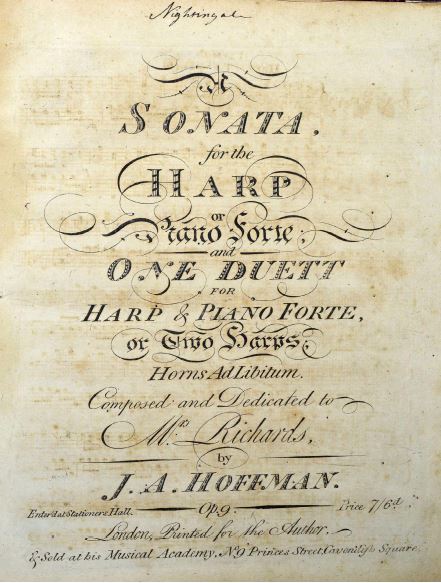 Nightingale
A
SONATA,
for the
HARP
or
Piano Forte,
and
ONE DUETT
FOR
HARP & PIANO FORTE,
or Two Harps,
Horns Ad Libitum.
Composed and Dedicated to
Mrs Richards,
by
J. A. HOFFMAN.
Enter'd at Stationers Hall. Op. 9. Price 7/6d
London, Printed for the Author.
& Sold at his Musical Academy, No 9 Princes Street, Cavendish Square,